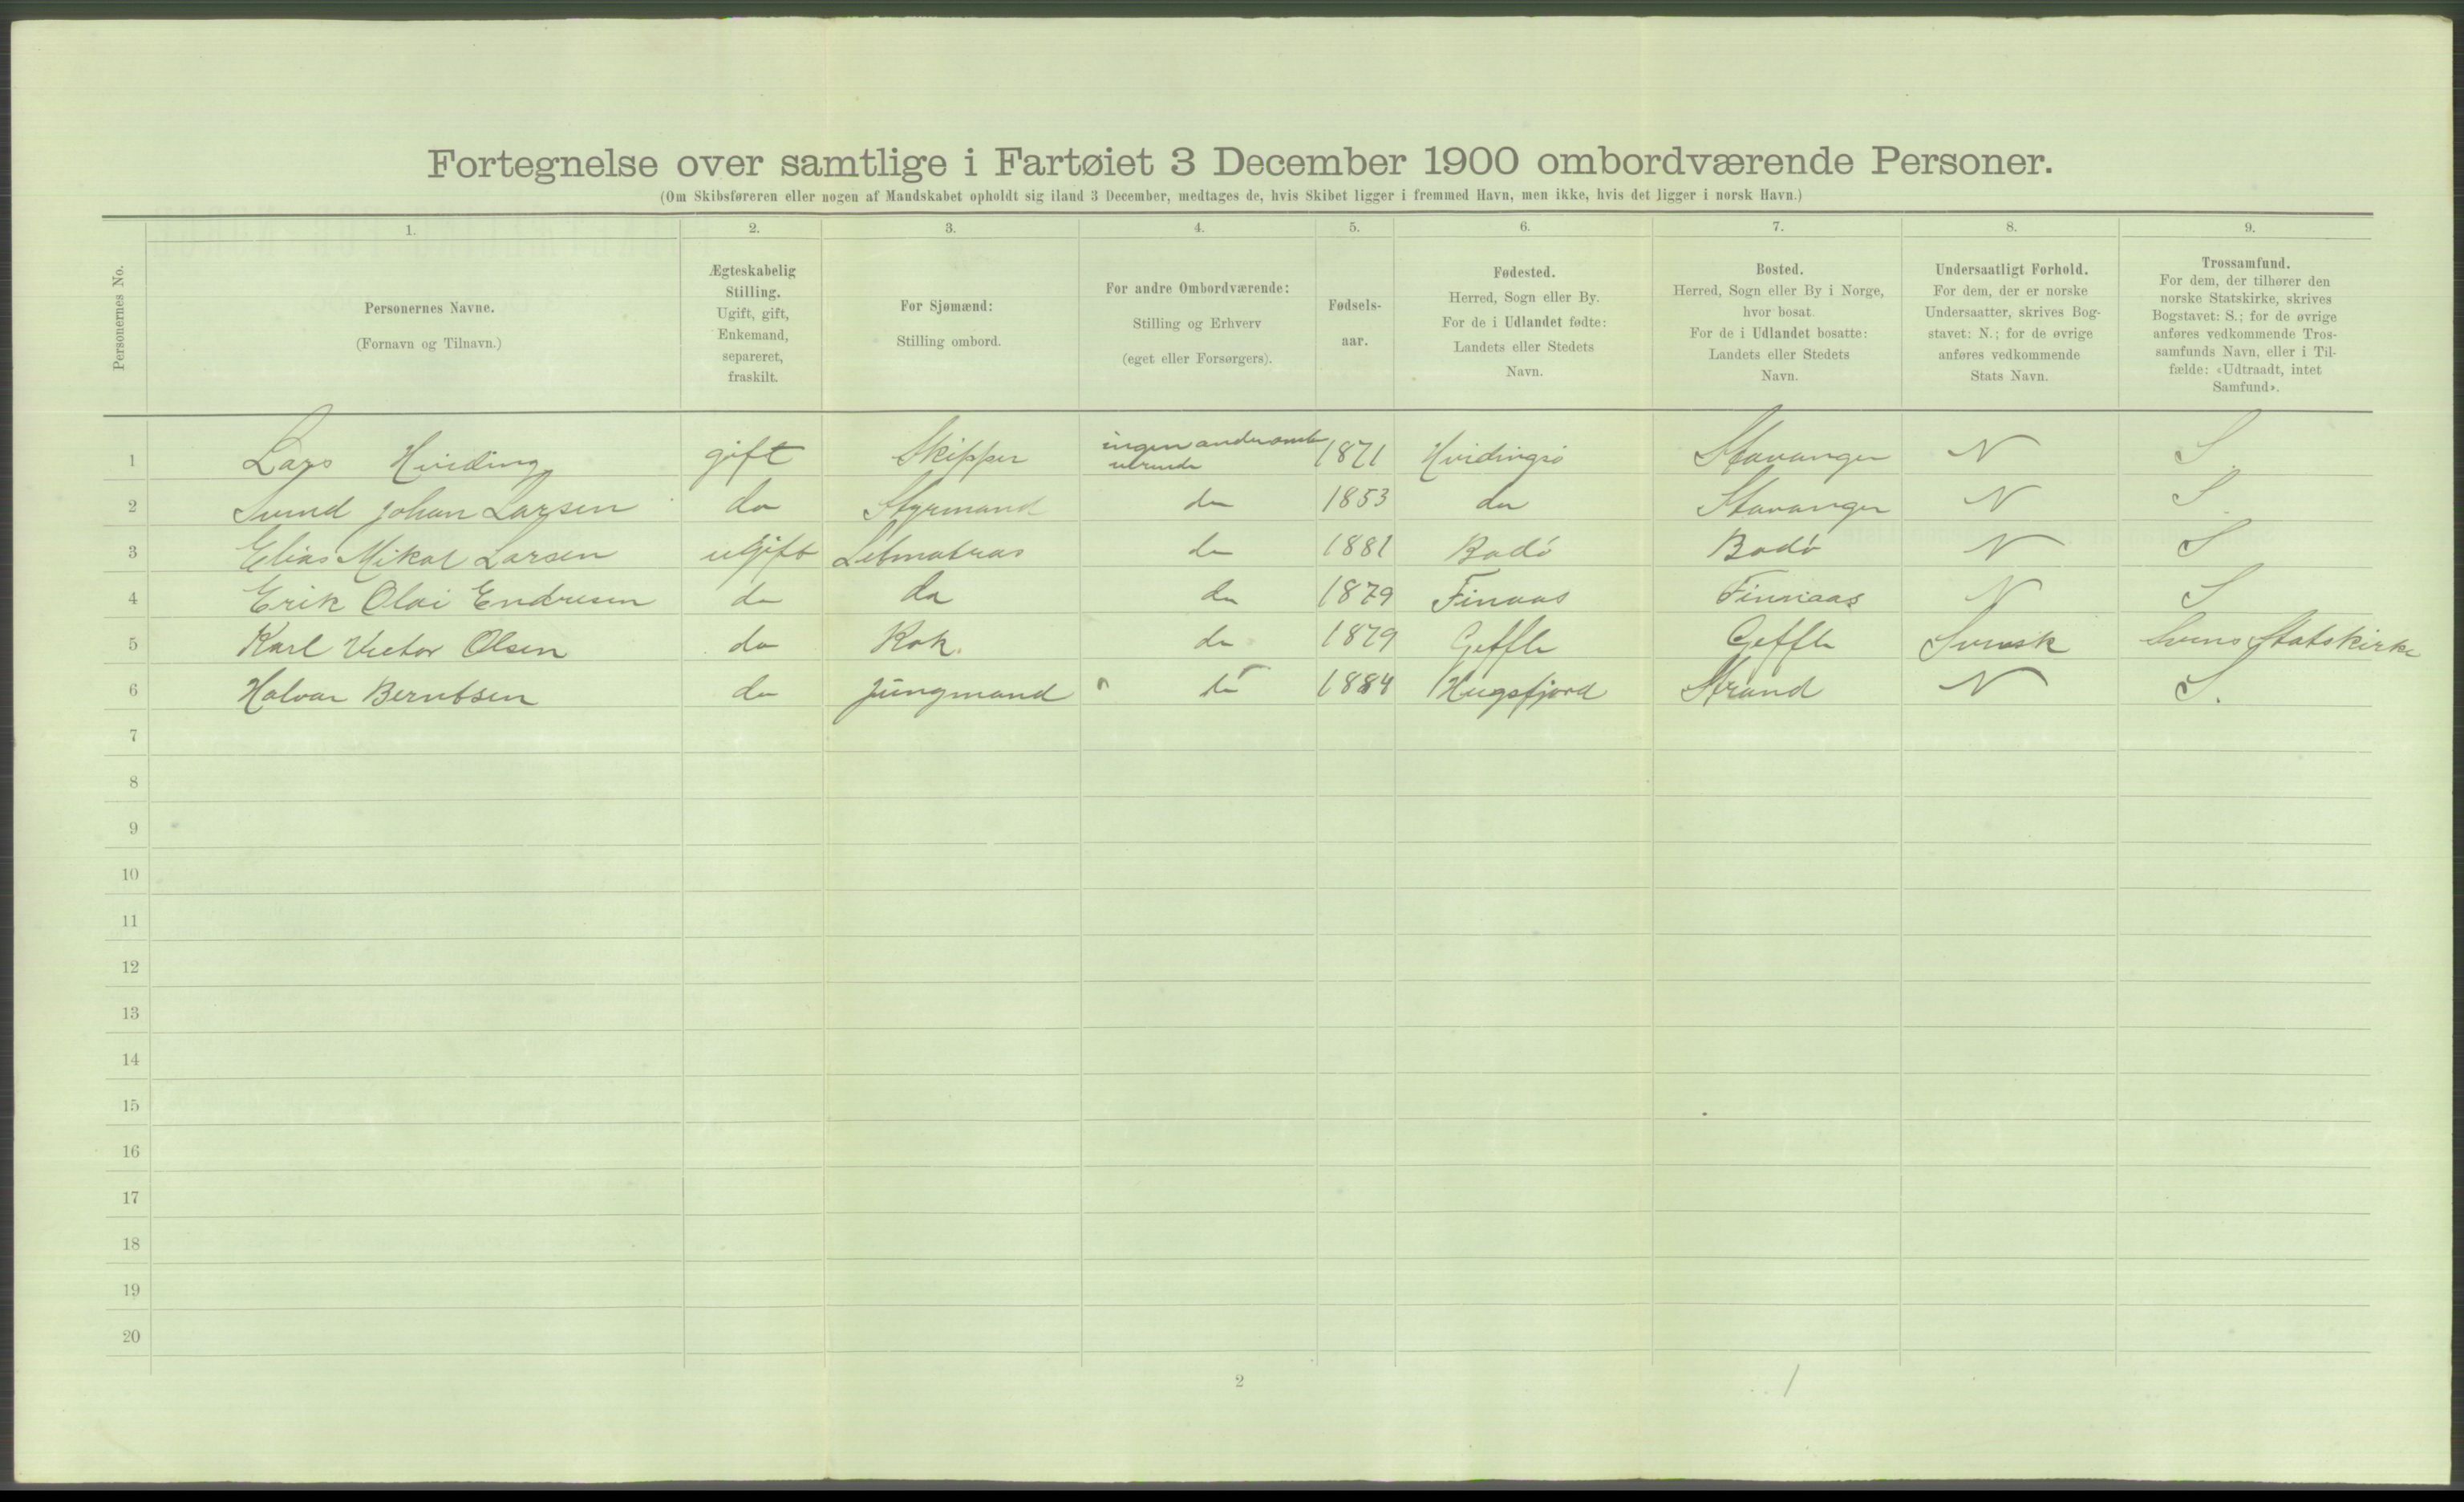 Fortegnelse over samtlige i Fartøiet 3 December 1900 ombordværende Personer.
(Om Skibsføreren eller nogen af Mandskabet opholdt sig iland 3 December, medtages de, hvis Skibet ligger i fremmed Havn, men ikke, hvis det ligger i norsk Havn.)
Personernes No.
1. 2. 3. 4. 5. 6. 7. 8. 9.
Personernes Navne.
(Fornavn og Tilnavn.)
Ægteskabelig
Stilling.
Ugift, gift,
Enkemand,
separeret,
fraskilt.
For Sjømænd:
Stilling ombord.
For andre Ombordværende:
Stilling og Erhverv
(eget eller Forsørgers).
Fødsels-
aar.
Fødested.
Herred, Sogn eller By.
For de i Udlandet fødte:
Landets eller Stedets
Navn.
Bosted.
Herred, Sogn eller By i Norge,
hvor bosat.
For de i Udlandet bosatte:
Landets eller Stedets
Navn.
Undersaatligt Forhold.
For dem, der er norske
Undersaatter, skrives Bog-
stavet: N.; for de øvrige
anføres vedkommende
Stats Navn.
Trossamfund.
For dem, der tilhører den
norske Statskirke, skrives
Bogstavet: S.; for de øvrige
anføres vedkommende Tros-
samfunds Navn, eller i Til-
fælde: «Udtraadt, intet
Samfund».
1 Lars Hviding gift Skipper ingen andre 1871 Hvidingsö Stavanger N S.
2 Svend Johan Larsen do Styrmand do 1853 do Stavanger N S.
3 Elias Mikal Larsen ugift Letmatros do 1881 Bodö Bodö N S
4 Erik Olai Endresen do do do 1879 Finaas Finnaas N S
5 Karl Victor Olsen do Kok. do 1879 Geffle Geffle Svensk Svens Statskirke
6 Halvar Berntsen do Jungmand do 1884 Strand N S.
7
8
9
10
11
12
13
14
15
16
17
18
19
20
2
1